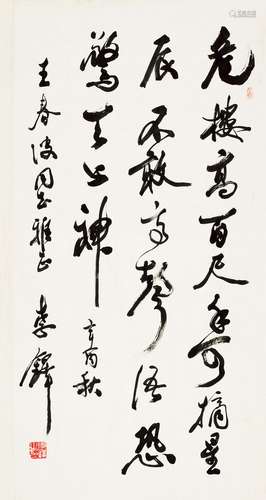 危樓高百尺手可摘星
辰不敢高聲語恐
驚天上神
辛酉秋
王春波同志雅正 李鐸